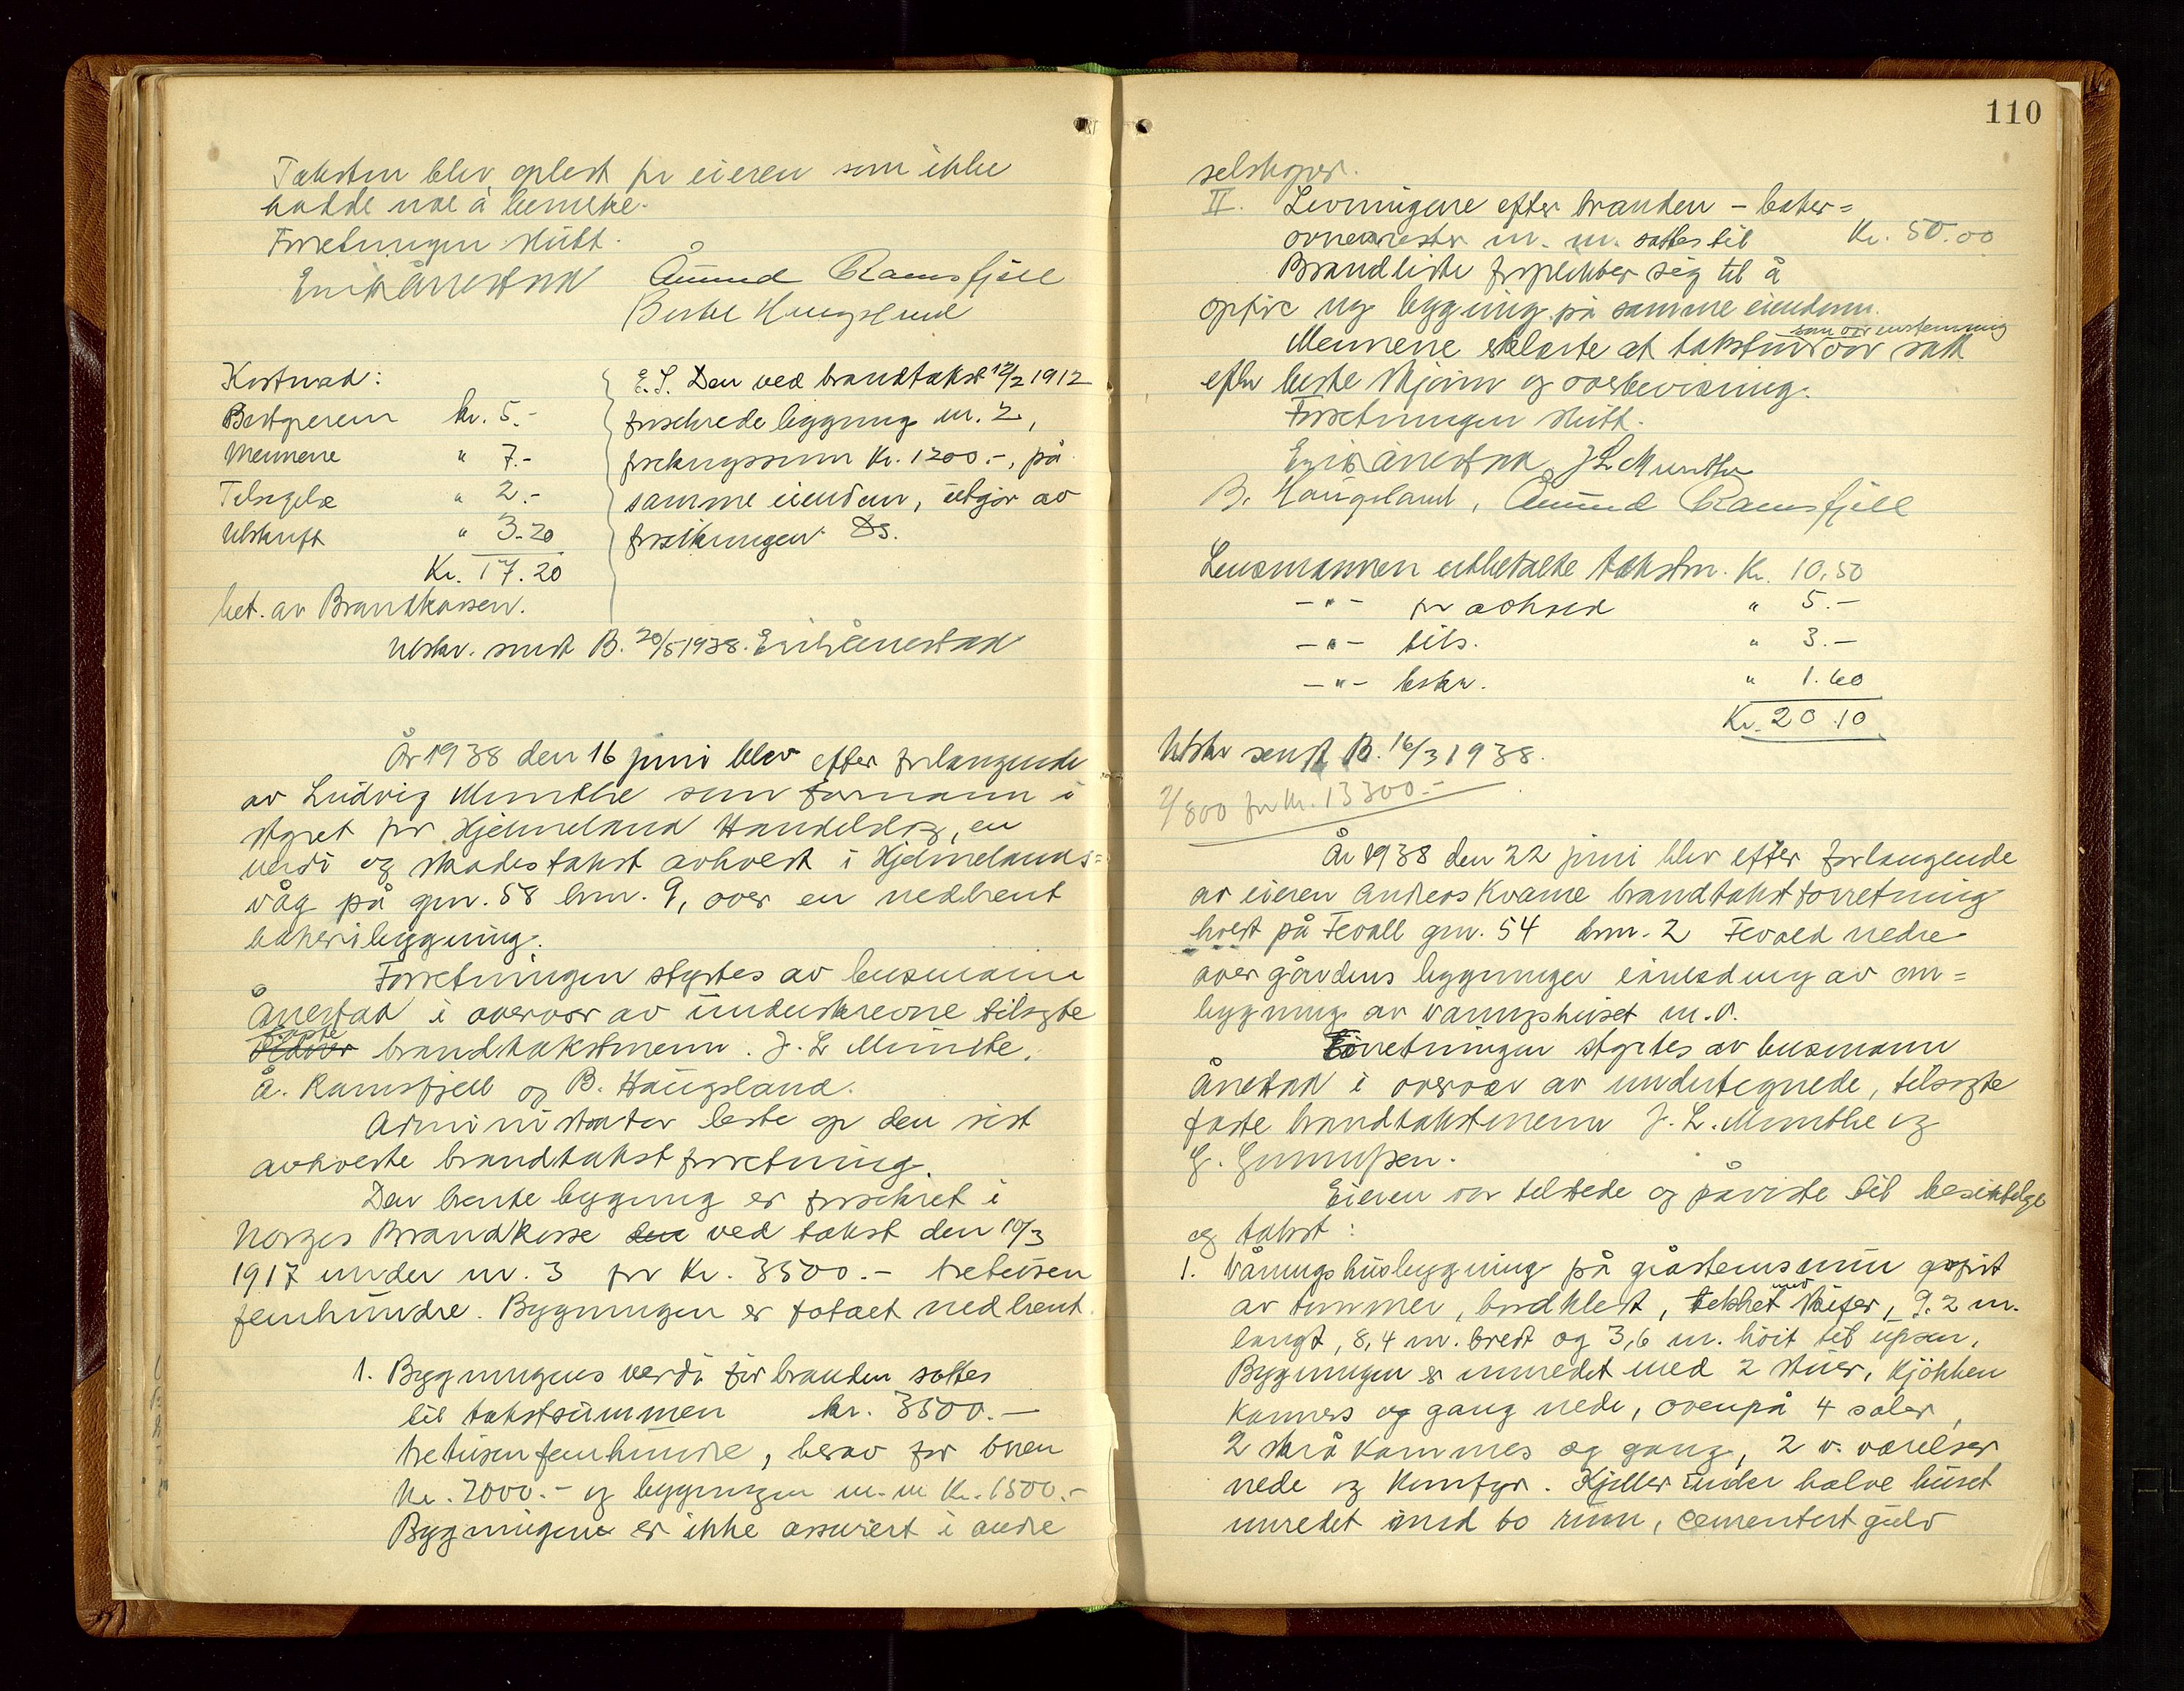 Taksten blev oplest for eieren som ikke
hadde noe å bemerke.
Forretningen slutt.
Erik Ånestad Åmund Ramsfjell
Bertel Haugsland
Kostnad:
Bestyreren kr. 5.-
Mennene " 7.-
Tilsigelse " 2.-
Utskrift " 3.20
Kr. 17.20
bet. av Brandkassen.
E. S. Den ved brandtakst 12/2 1912
forsikrede bygning nr. 2,
forsikringssum Kr. 1200.-, på
samme eiendom, utgår av
forsikringen. Ds.
Utskr. sendt B. 20/5 1938. Erik Ånestad
År 1938 den 16 juni blev efter forlangende
av Ludvig Munthe som formann i
styret for Hjelmeland Handelslag, en
verdi og skadestakst avholdt i Hjelmelands=
våg på gnr. 58 bnr. 9, over en nedbrent
bakeribygning.
Forretningen styrtes av lensmann
Ånestad i overvær av underskrevne tilsagte
faste brandtakstmenn. J. L. Munthe,
Å. Ramsfjell og B. Haugsland.
Administrator leste op den sist
avholdte brandtakstforretning.
Den brente bygning er forsikret i
Norges Brandkasse den ved takst den 10/3
1917 under nr. 3 for Kr. 3500.- tretusen
femhundre. Bygningen er totalt nedbrent.
1. Bygningens verdi før branden sattes
til takstsummen kr. 3500.-
tretusenfemhundre, herav for ovnen
Kr. 2000.- og bygningen m. m Kr. 1500.-
Bygningene er ikke assurert i andre
110
selskaper.
II. Levningene efter branden - baker=
ovnenrester m. m. sattes til Kr. 50.00
Brandlidte forplikter sig til å
opføre ny bygning på samme eiendom.
Mennene erklærte at taksten som var enstemmig var satt
efter beste skjønn og overbevisning.
Forretningen slutt.
Erik Ånestad, J L Munthe
B. Haugsland, Åmund Ramsfjell
Lensmannen utbetalte takstm. Kr. 10,50
-"- for avhold " 5.-
-"- tils. " 3.-
-"- beskr. " 1.60
Kr. 20.10
Utskr sendt B. 16/3 1938.
2/800 for kr. 13300.-
År 1938 den 22 juni blev efter forlangende
av eieren Andreas Kvame brandtakstforretning
holdt på Tevoll gnr. 54 bnr. 2 Tevold nedre
over gårdens bygninger i anledning av om=
bygning av vaningshuset m.v.
Forretningen styrtes av lensmann
Ånestad i overvær av undertegnede, tilsagte
faste brandtakstmenn J. L. Munthe og
G. Gunnufsen.
Eieren var tilstede og påviste til besiktelse
og takst:
1. Våningshusbygning på gråstensmur opført
av tømmer, bordkledt, tekket med skifer, 9.2 m.
langt, 8,4 m. bredt og 3,6 m. høit til upsen,
Bygningen er innredet med 2 stuer, kjøkken
kammers og gang nede, ovenpå 4 saler,
2 skråkammers og gang, 2 v. værelser
nede og komfyr. Kjeller under halve huset
innredet med to rum, cementert gulv